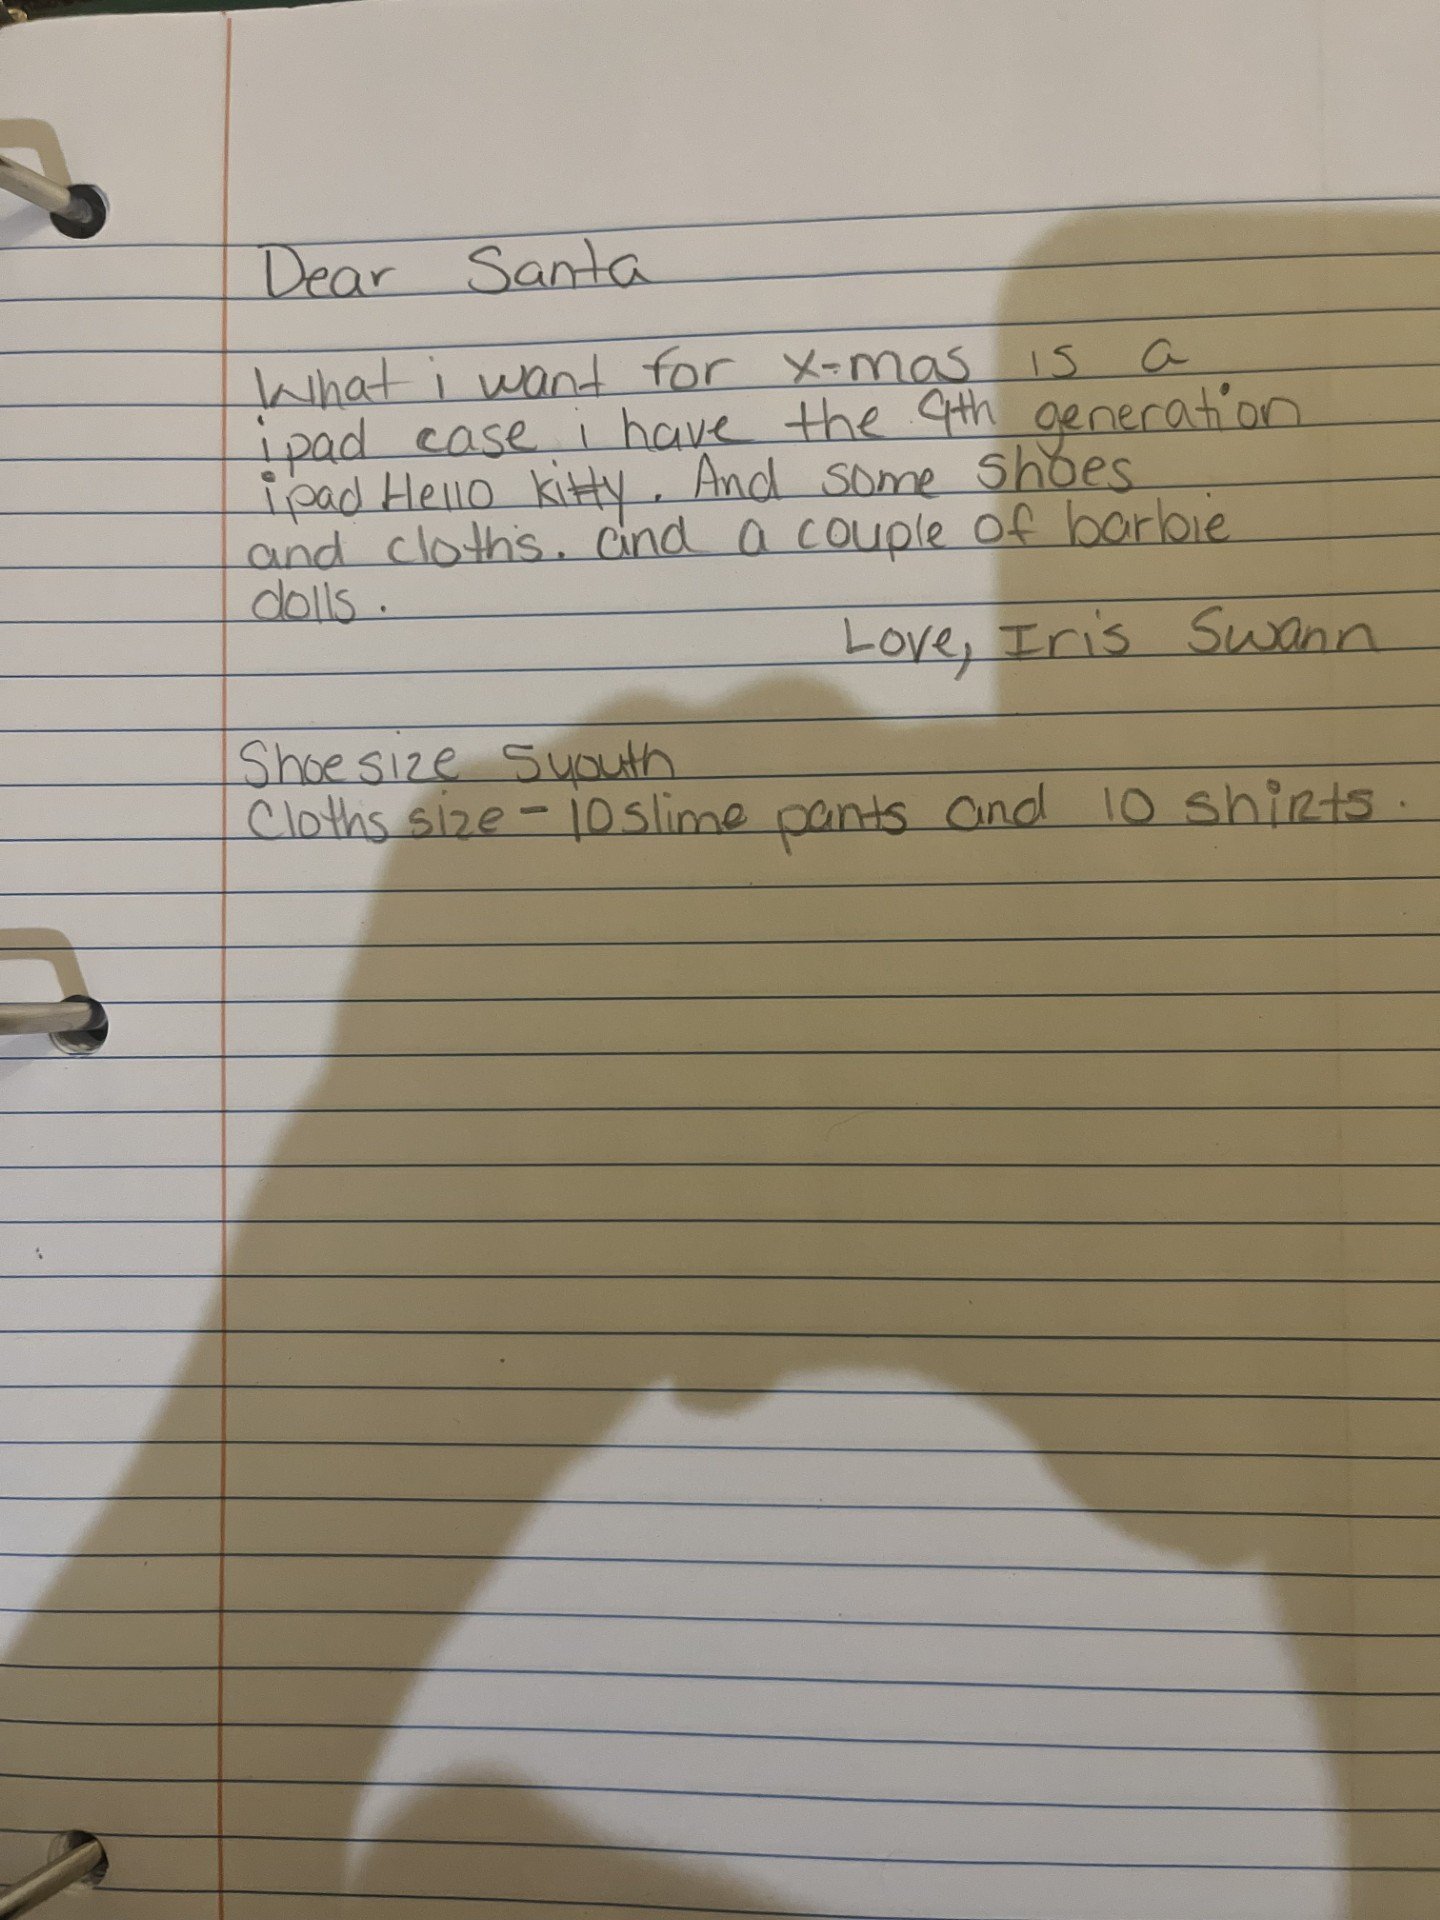 Dear Santa
What i want for x-mas is a
ipad case i have the 9th generation
ipad Hello kitty. And some shoes
and cloths. and a couple of barbie
dolls.
Love, Iris Swann
Shoe size 5 youth
Cloths size - 10 slime pants and 10 shirts.